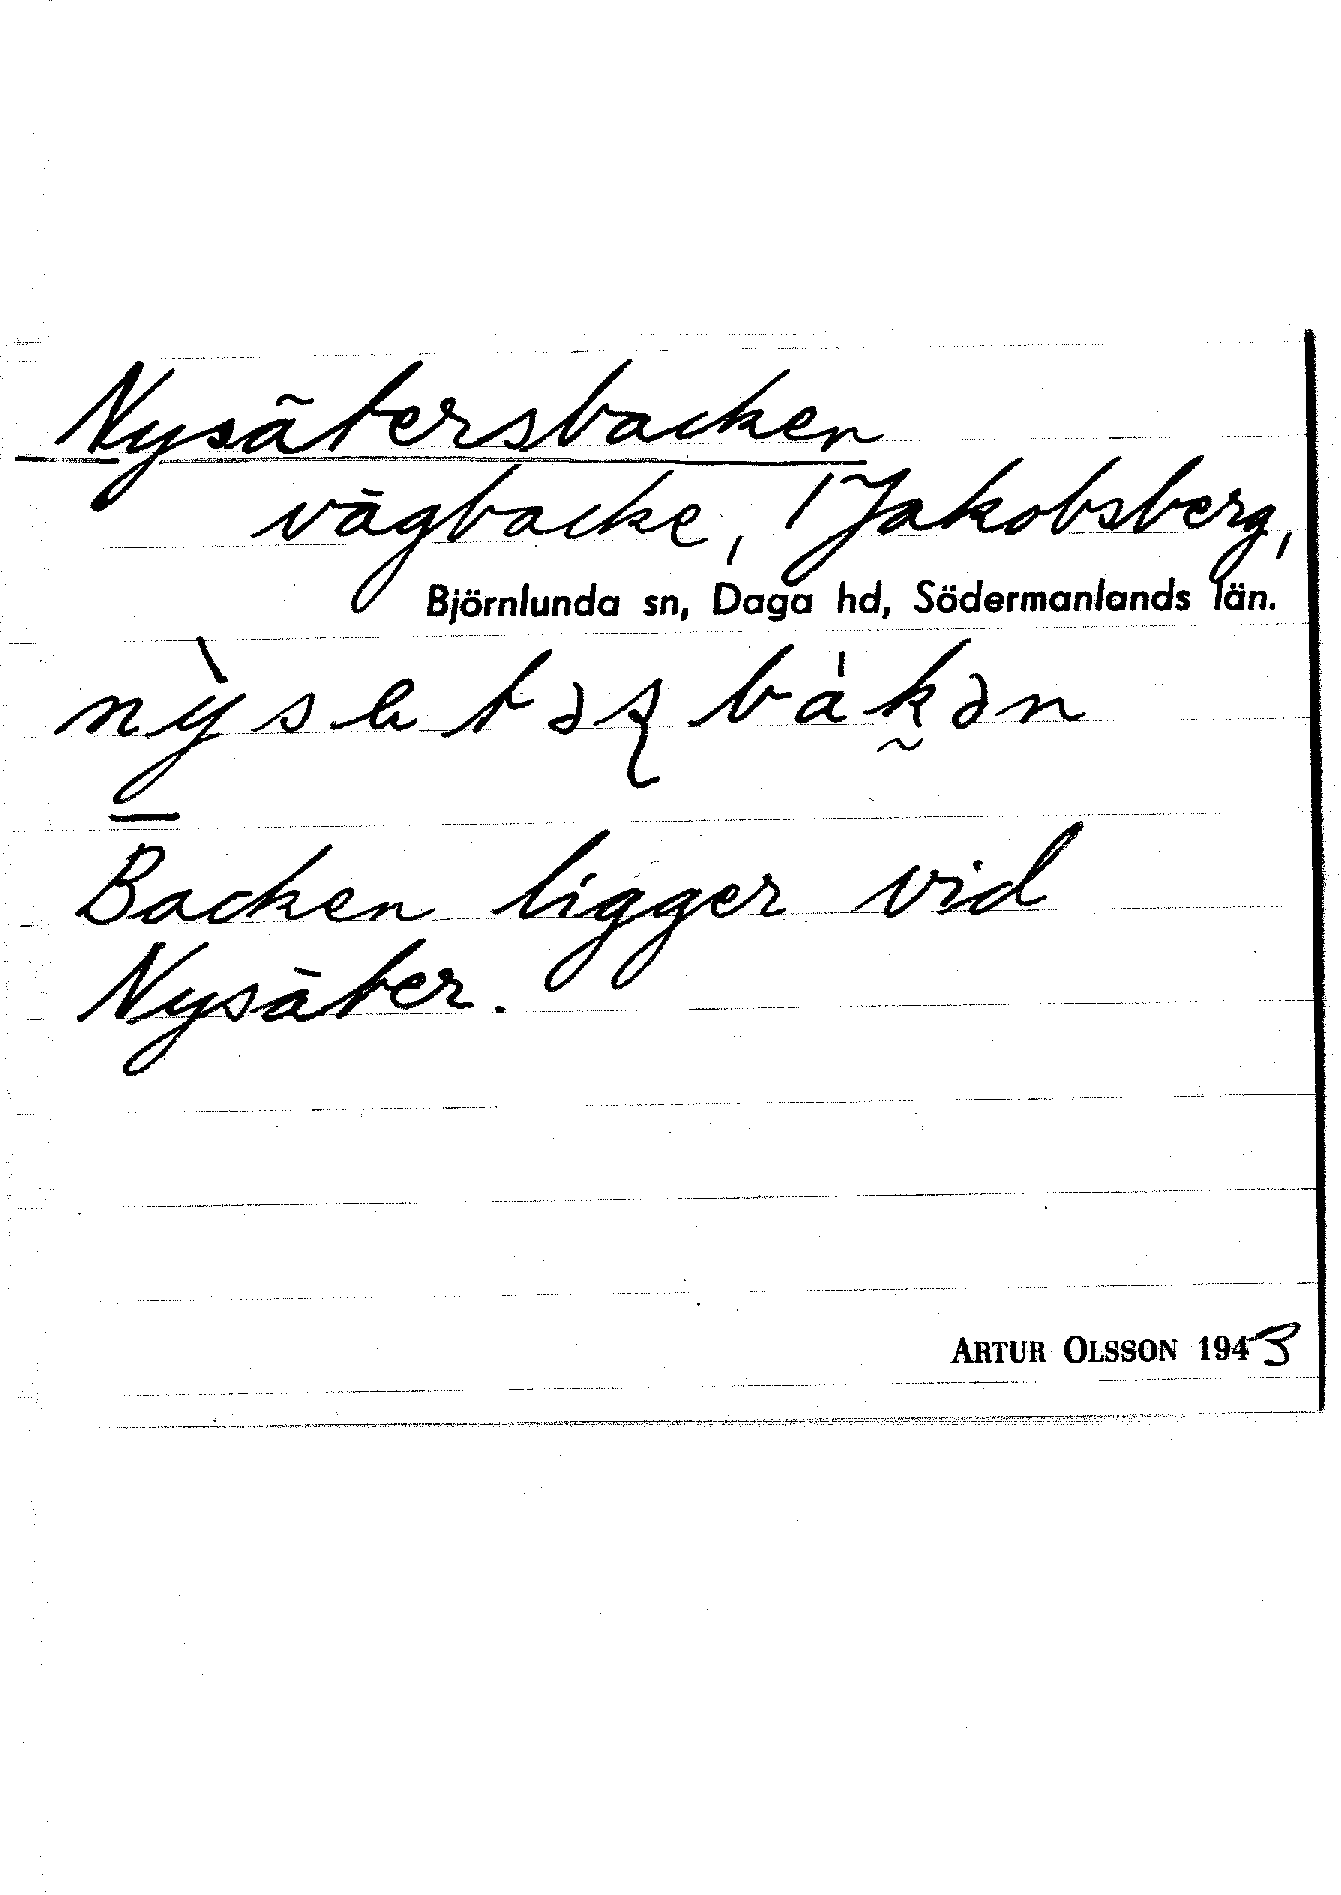 Nysätersbacken
vägbacke, Jakobsberg,
Björnlunda sn, Daga hd, Södermanlands län.
Backen ligger vid
Nysäter.
ARTUR OLSSON 1943